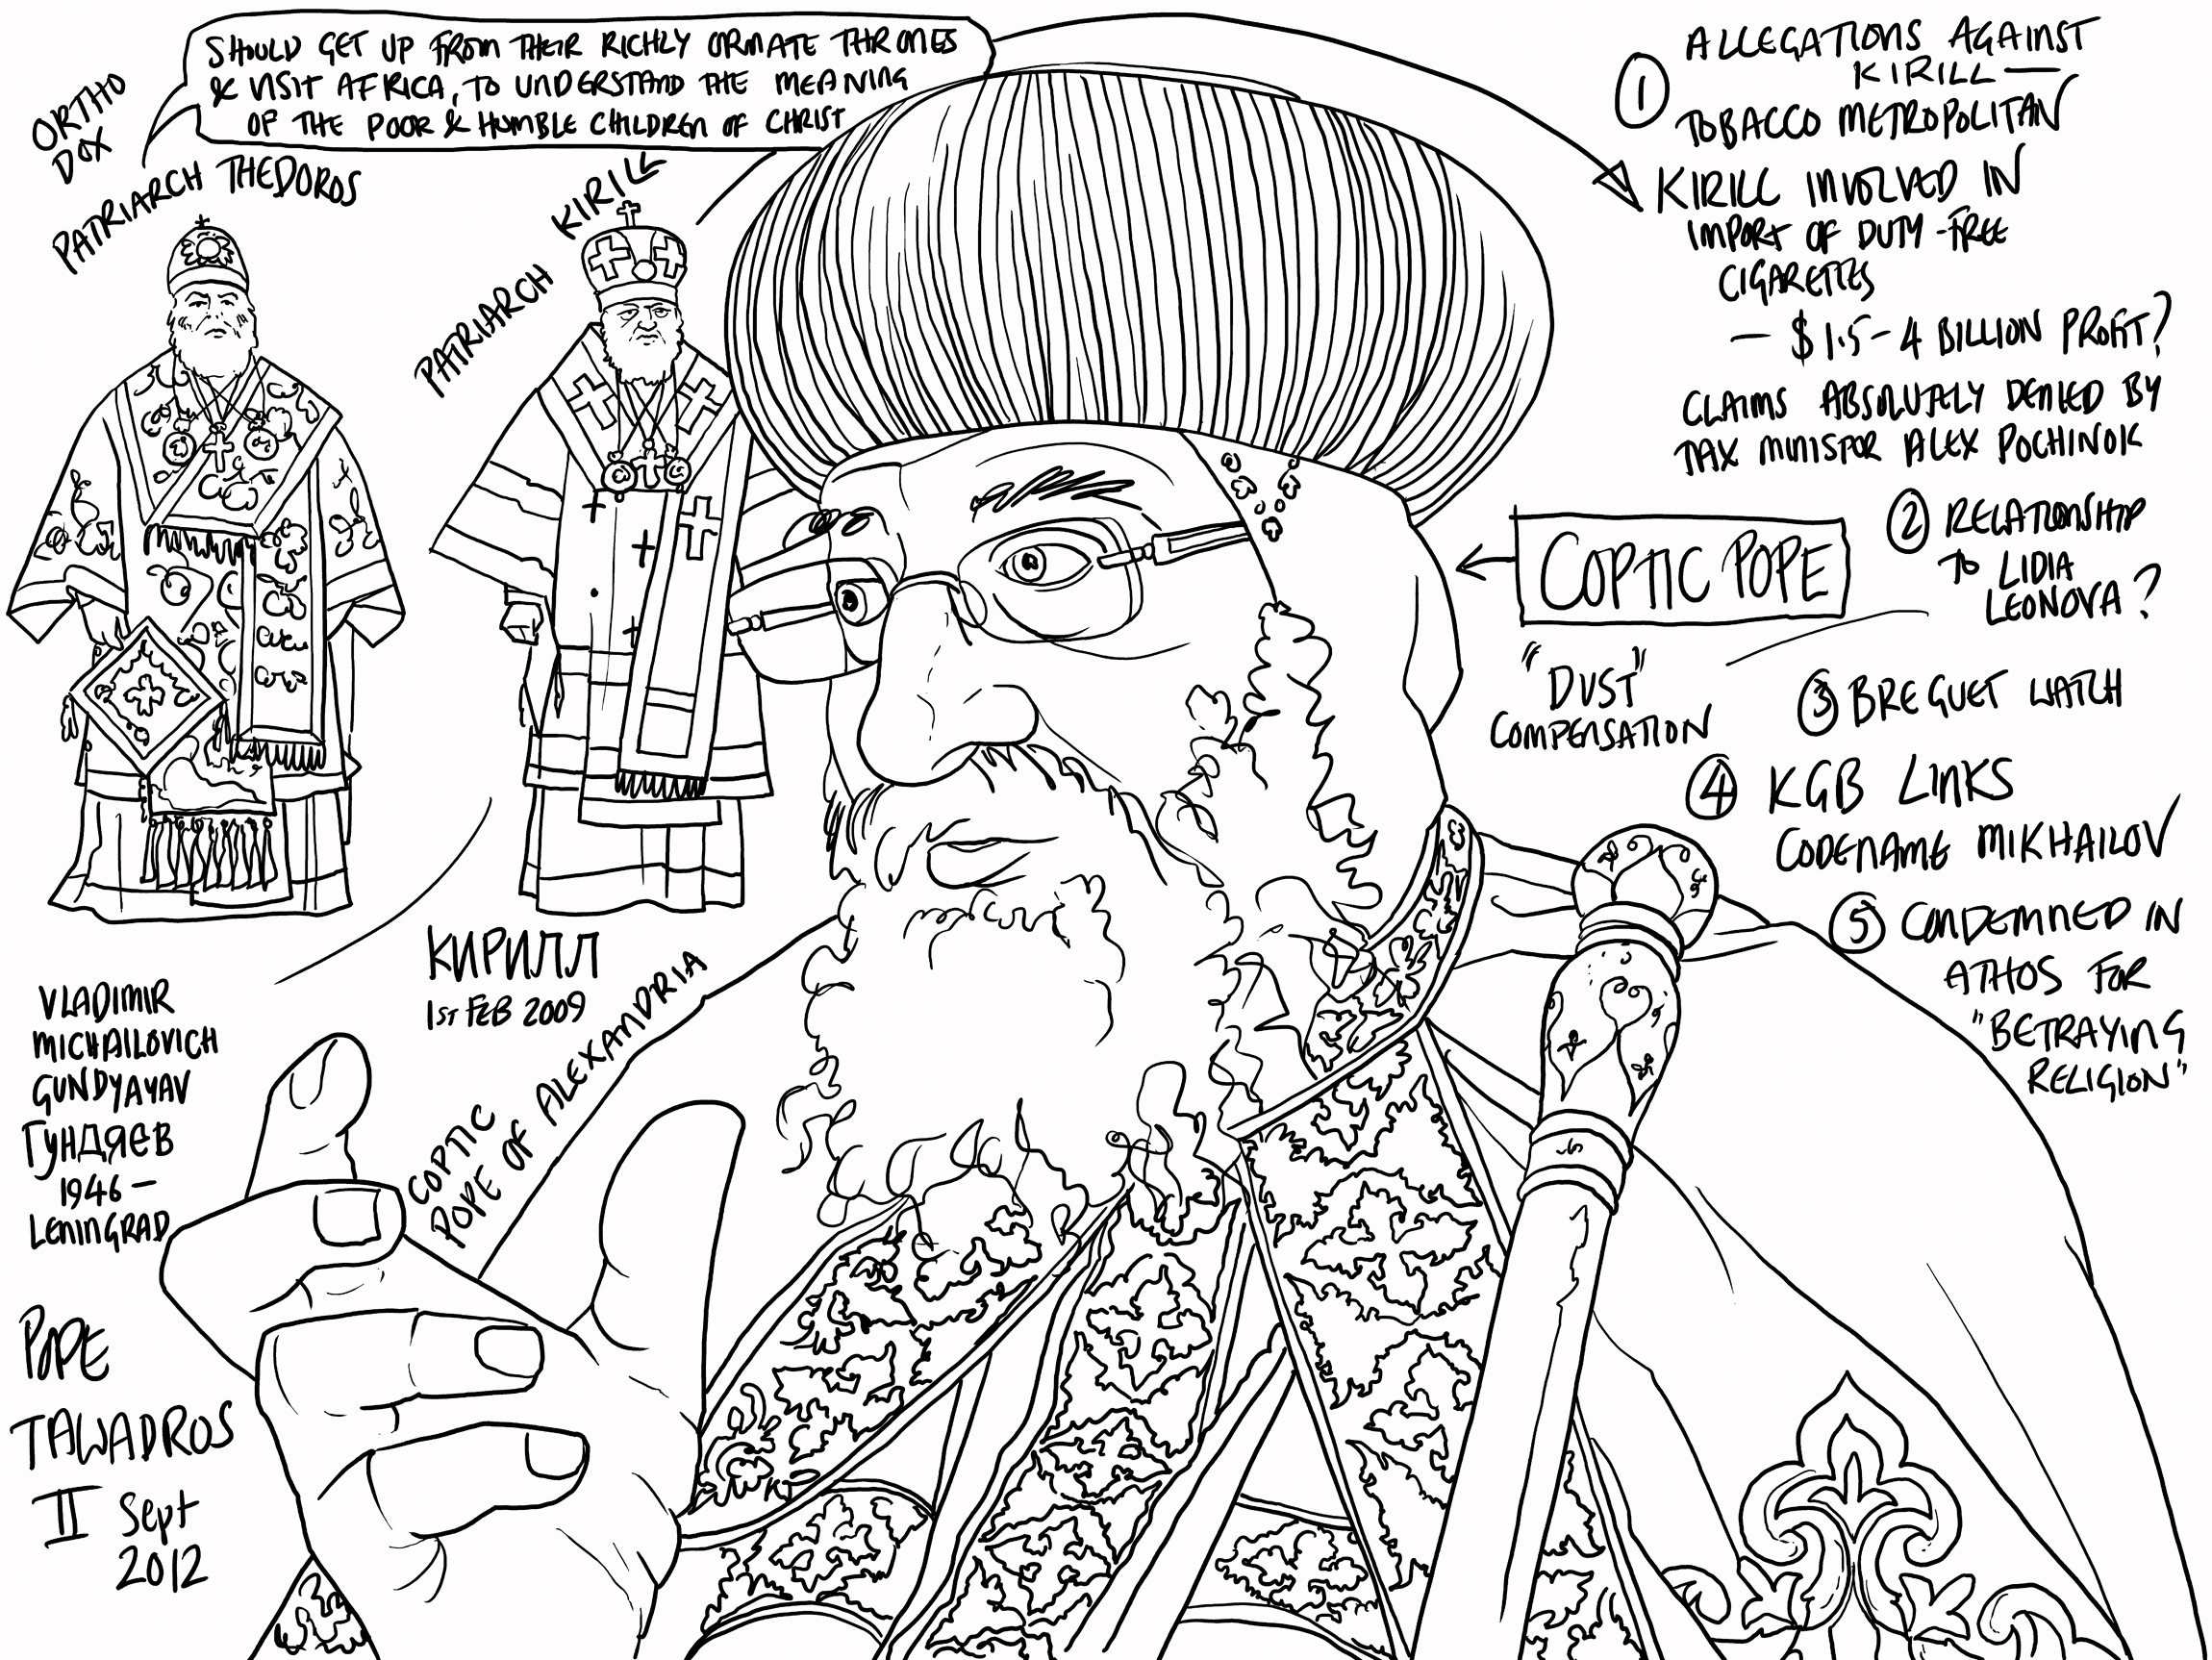 SHOULD GET UP FROM THEIR RICHLY ORNATE THRONES
& VISIT AFRICA, TO UNDERSTAND THE MEANING
OF THE POOR & HUMBLE CHILDREN OF CHRIST
ORTHO
DOX
PATRIARCH THEDOROS
PATRIARCH KIRILL
КИРИЛЛ
1ST FEB 2009
VLADIMIR
MICHAILOVICH
GUNDYAYAV
ГУНДЯЕВ
1946 —
LENINGRAD
COPTIC
POPE OF ALEXANDRIA
POPE
TAWADROS
II Sept
2012
① ALLEGATIONS AGAINST
KIRILL —
TOBACCO METROPOLITAN
KIRILL INVOLVED IN
IMPORT OF DUTY-FREE
CIGARETTES
— $1.5-4 BILLION PROFIT?
CLAIMS ABSOLUTELY DENIED BY
TAX MINISTOR ALEX POCHINOK
COPTIC POPE
② RELATIONSHIP
TO LIDIA
LEONOVA?
"DUST"
COMPENSATION
③ BREGUET WATCH
④ KGB LINKS
CODENAME MIKHAILOV
⑤ CONDEMNED IN
ATHOS FOR
"BETRAYING
RELIGION"